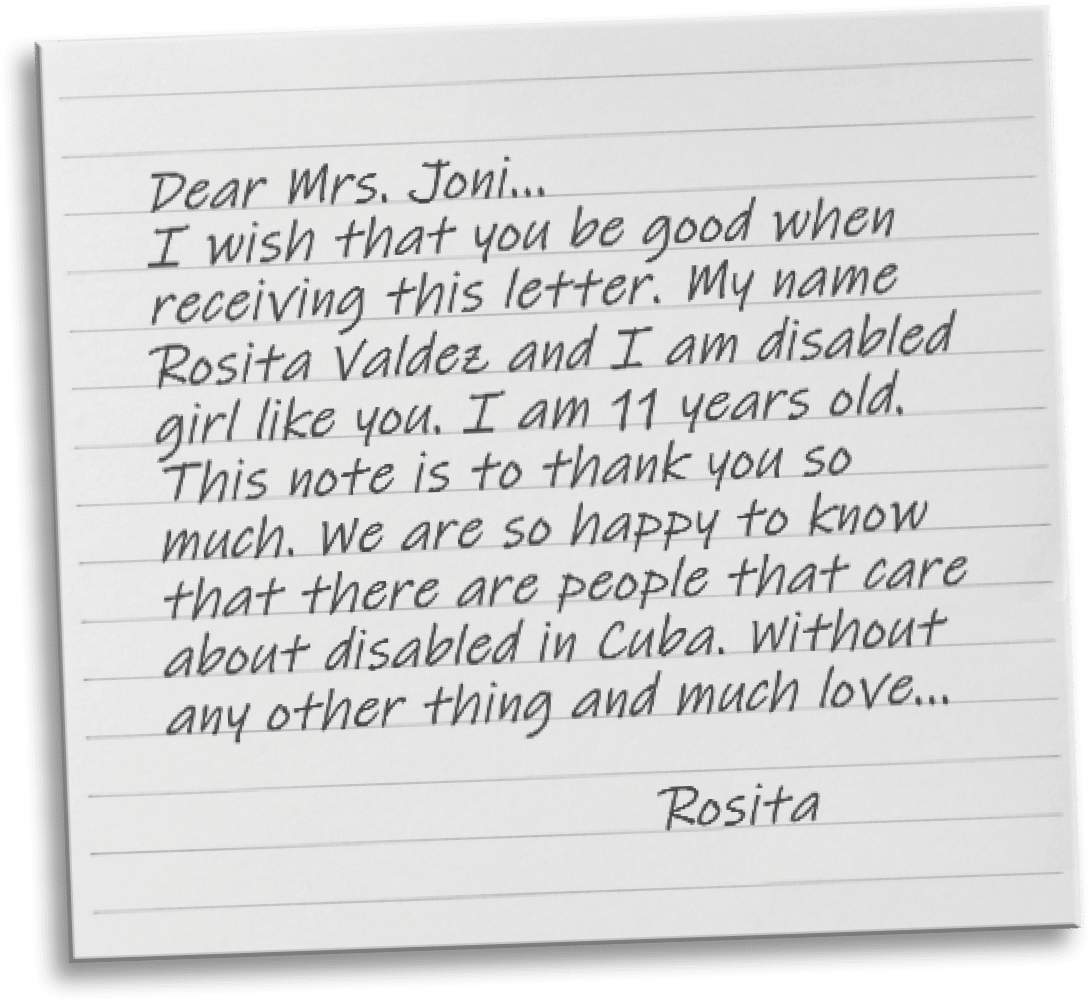 Dear Mrs. Joni...
I wish that you be good when
receiving this letter. My name
Rosita Valdez and I am disabled
girl like you. I am 11 years old.
This note is to thank you so
much. We are so happy to know
that there are people that care
about disabled in Cuba. Without
any other thing and much love...
Rosita